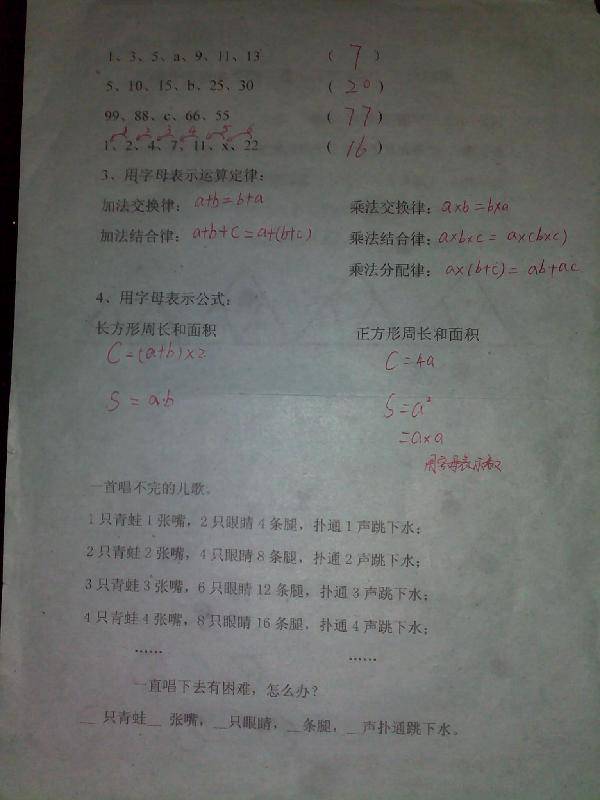 1、3、5、a、9、11、13 ( 7 )
5、10、15、b、25、30 ( 20 )
99、88、c、66、55 ( 77 )
1 2 3 4 5 6
1、2、4、7、11、x、22 ( 16 )
3、用字母表示运算定律:
加法交换律: a+b=b+a 乘法交换律: a×b=b×a
加法结合律: a+b+c=a+(b+c) 乘法结合律: a×b×c=a×(b×c)
乘法分配律: a×(b+c)=ab+ac
4、用字母表示公式:
长方形周长和面积 正方形周长和面积
C=(a+b)×2 C=4a
S=a·b S=a²
=a×a
用字母表示数
一首唱不完的儿歌。
1只青蛙1张嘴,2只眼睛4条腿,扑通1声跳下水;
2只青蛙2张嘴,4只眼睛8条腿,扑通2声跳下水;
3只青蛙3张嘴,6只眼睛12条腿,扑通3声跳下水;
4只青蛙4张嘴,8只眼睛16条腿,扑通4声跳下水;
…… ……
一直唱下去有困难,怎么办?
__只青蛙__张嘴,__只眼睛,__条腿,__声扑通跳下水。